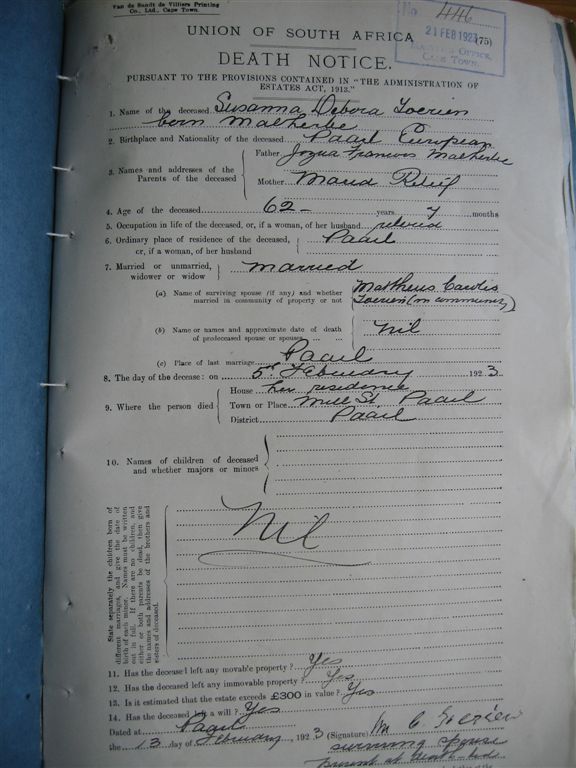 Van de Sandt de Villiers Printing
Co., Ltd., Cape Town.
No. 446
21 FEB 1923
CAPE TOWN.
(75)
UNION OF SOUTH AFRICA
DEATH NOTICE.
PURSUANT TO THE PROVISIONS CONTAINED IN "THE ADMINISTRATION OF
ESTATES ACT, 1913."
1. Name of the deceased Susanna Debora Loerien
born Malherbe
2. Birthplace and Nationality of the deceased Paarl European
3. Names and addresses of the Parents of the deceased
Father Jozua Francois Malherbe
Mother Maria Retief
4. Age of the deceased 62 years 7 months
5. Occupation in life of the deceased, or, if a woman, of her husband retired
6. Ordinary place of residence of the deceased, or, if a woman, of her husband Paarl
7. Married or unmarried, widower or widow married
(a) Name of surviving spouse (if any) and whether married in community of property or not
Mattheus Carolis
Loerien (in community)
(b) Name or names and approximate date of death of predeceased spouse or spouses nil
(c) Place of last marriage Paarl
8. The day of the decease: on 5th February 1923
9. Where the person died
House her residence
Town or Place Mill St. Paarl
District Paarl
10. Names of children of deceased and whether majors or minors
Nil
State separately the children born of
different marriages, and give the date of
birth of each minor. Names must be written
out in full. If there are no children, and
either or both parents be dead, then give
the names and addresses of the brothers and
sisters of deceased.
11. Has the deceased left any movable property? Yes
12. Has the deceased left any immovable property? Yes
13. Is it estimated that the estate exceeds £300 in value? Yes
14. Has the deceased left a will? Yes
Dated at Paarl
the 13 day of February, 1923 (Signature) M. C. Loerien
surviving spouse
present at death-bed